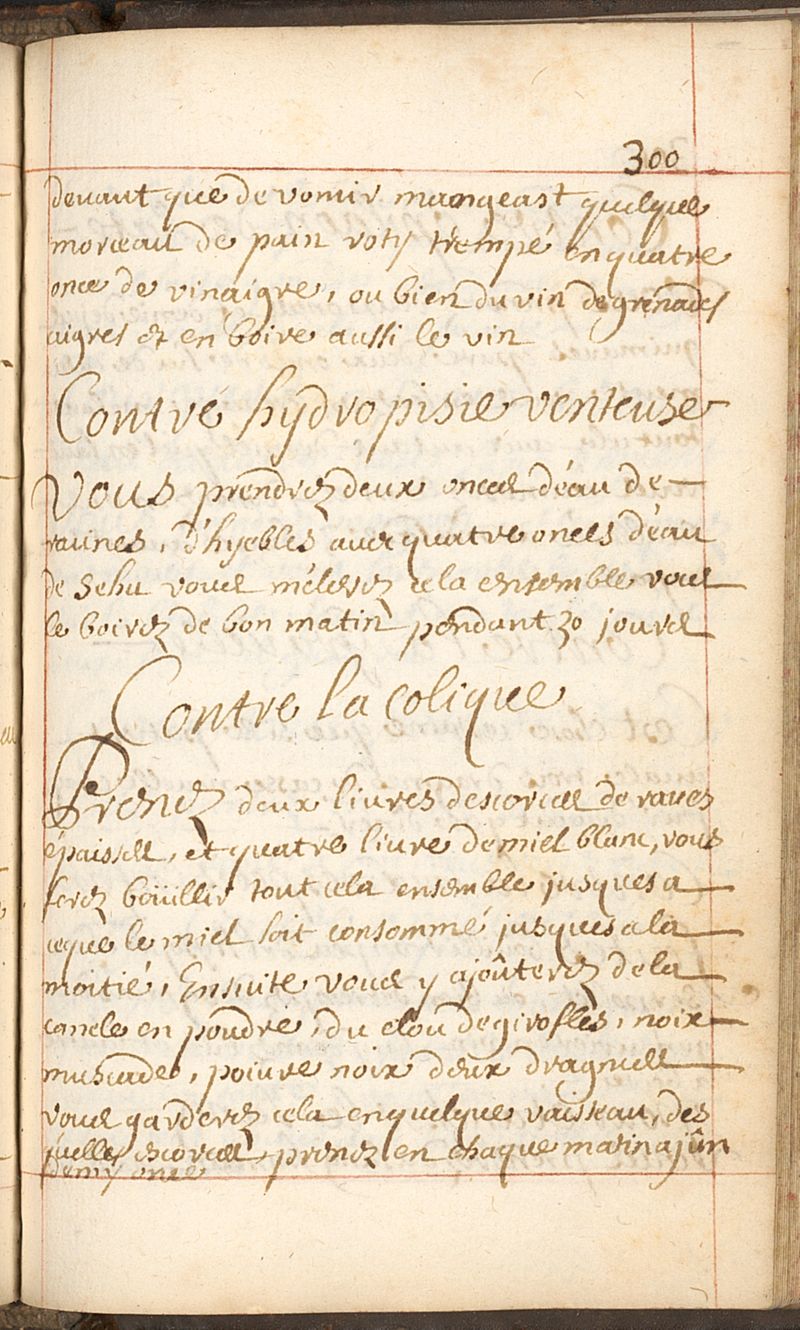 300
devant que de vomir mangeast quelque
morceau de pain roty trempé en quatre
once de vinaigre, ou bien du vin de grenades
aigres & en boire aussi le vin
Contre hydropisie venteuse
Vous prendrez deux onces d'éau de
racines, d'hyebles avec quatre onces d'éau
de sehu vous mélerez cela ensemble vous
le boirez de bon matin pendant 30 jours
Contre la colique
Prenez deux livres descorces de raves
épaisses, et quatre livre de miel blanc, vous
ferez boüillir tout cela ensemble jusques a
ceque le miel soit consommé jusques a la
moitié, Ensuite vous y ajoûterez de la
canele en poudre, du clou de girofles, noix
muscade, poivre noir deux dragmes
vous garderez cela en quelque vaisseau, des
quelles escorces prenez en chaque matin a jûn
demy once